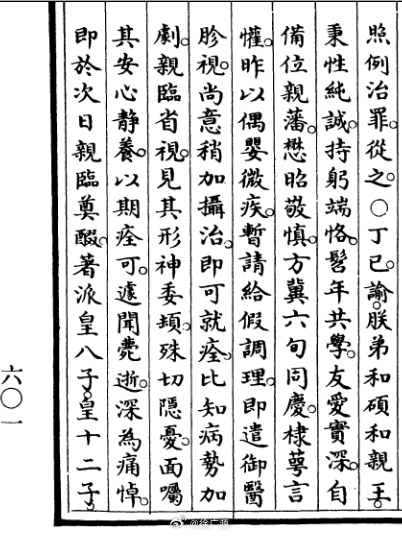 照例治罪。從之。○丁巳。諭。朕弟和碩和親王。
秉性純誠。持躬端恪。髫年共學。友愛實深。自
備位親藩。懋昭敬慎。方冀六旬同慶。棣萼言
懽。昨以偶嬰微疾。暫請給假調理。即遣御醫
胗視。尚意稍加攝治。即可就痊。比知病勢加
劇。親臨省視。見其形神委頓。殊切隱憂。面囑
其安心靜養。以期痊可。遽聞薨逝。深為痛悼。
即於次日親臨奠醊。著派皇八子。皇十二子。
六〇一
@徐广源